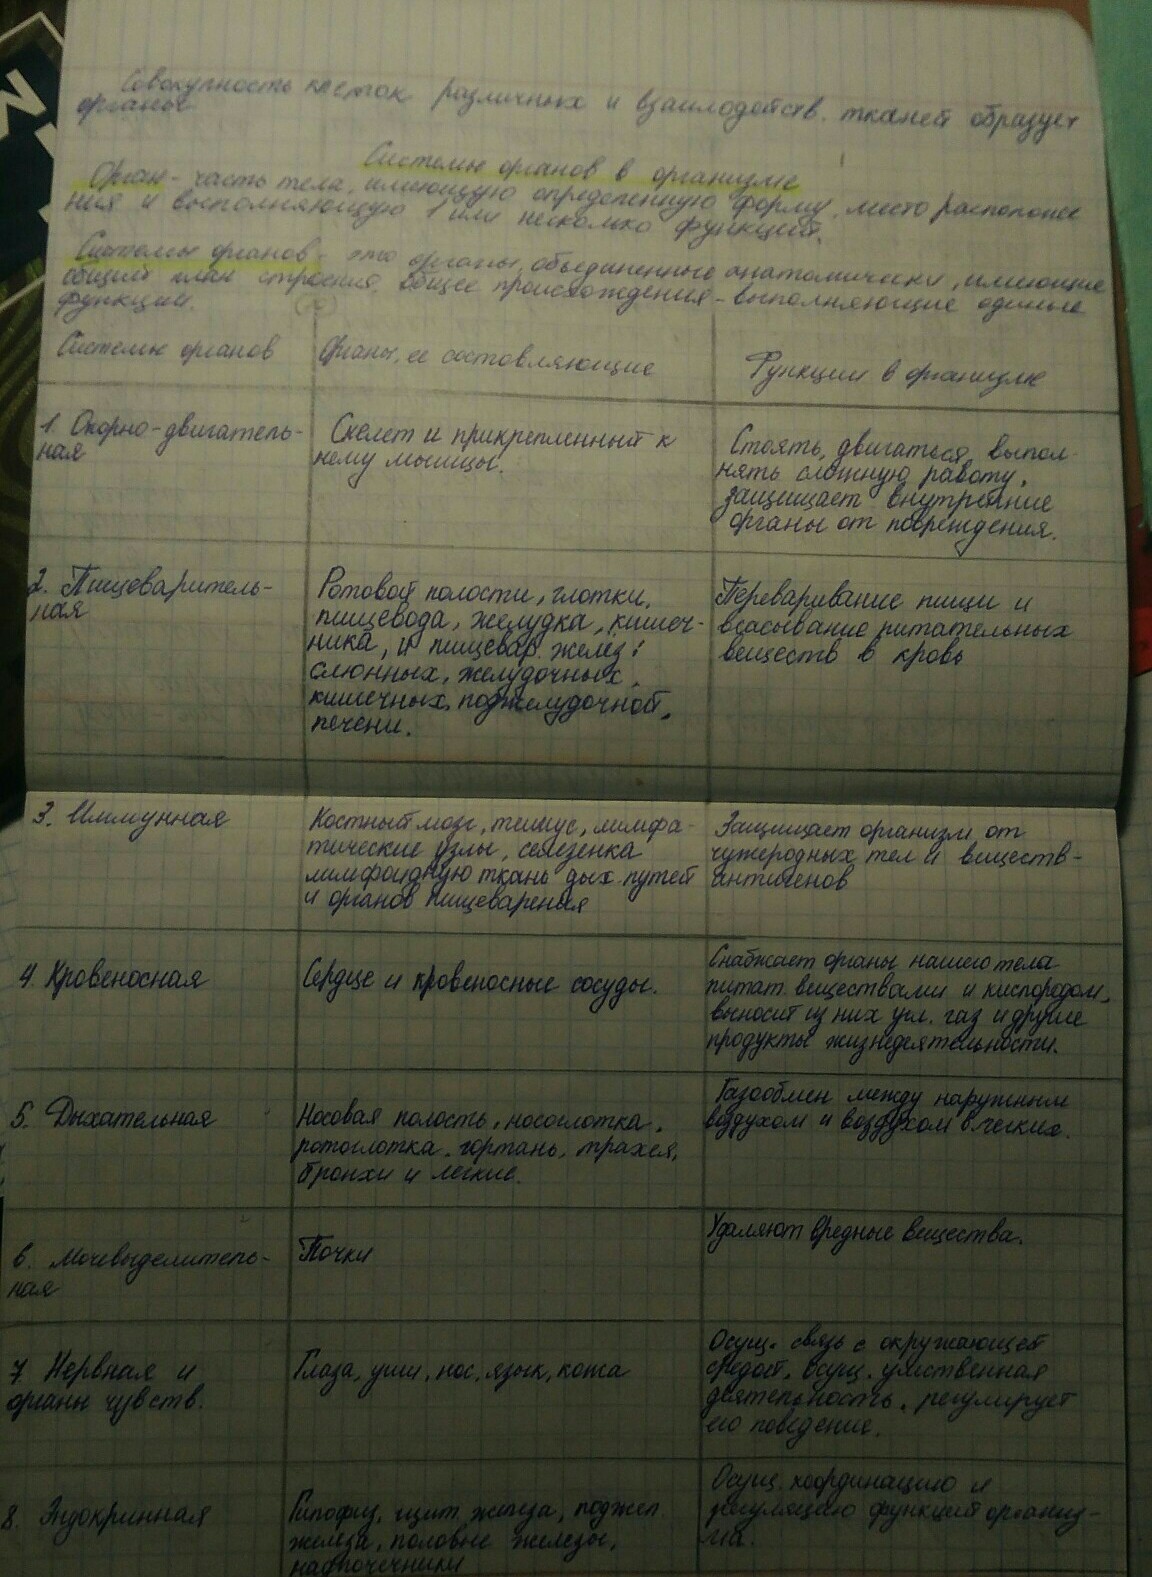 Совокупность клеток различных и взаимодейств. тканей образует
органы
Системы органов в организме
Орган - часть тела, имеющую определенную форму, место расположе
ния и выполняющую 1 или несколько функций.
Системы органов - это органы, объединенные анатомически, имеющие
общий план строения, общее происхождения - выполняющие единые
функции.
Системы органов
Органы, ее состовляющие
Функции в организме
1. Опорно-двигатель-
ная
Скелет и прикрепленный к
нему мышцы.
Стоять, двигаться, выпол-
нять сложную работу,
защищает внутренние
органы от повреждения.
2. Пищеваритель-
ная
Ротовой полости, глотки,
пищевода, желудка, кишеч-
ника, и пищевар. желез:
слюнных, желудочных,
кишечных, поджелудочной,
печени.
Переваривание пищи и
всасывание питательных
веществ в кровь
3. Иммунная
Костный мозг, тимус, лимфа-
тические узлы, селезенка
лимфоидную ткань дых. путей
и органов пищеварения
Защищает организм от
чужеродных тел и веществ-
антигенов
4. Кровеносная
Сердце и кровеносные сосуды.
Снабжает органы нашего тела
питат. веществами и кислородом,
выносит из них угл. газ и другие
продукты жизнедеятельности.
5. Дыхательная
Носовая полость, носоглотка,
ротоглотка, гортань, трахея,
бронхи и легкие.
Газообмен между наружным
воздухом и воздухом в легких.
6. Мочевыделитель-
ная
Почки
Удаляют вредные вещества.
7. Нервная и
органы чувств.
Глаза, уши, нос, язык, кожа
Осущ. связь с окружающей
средой, осущ. умственная
деятельность, регулирует
его поведение.
8. Эндокринная
Гипофиз, щит. железа, поджел.
железа, половые железы,
надпочечники
Осущ. координацию и
регуляцию функций организ-
ма.